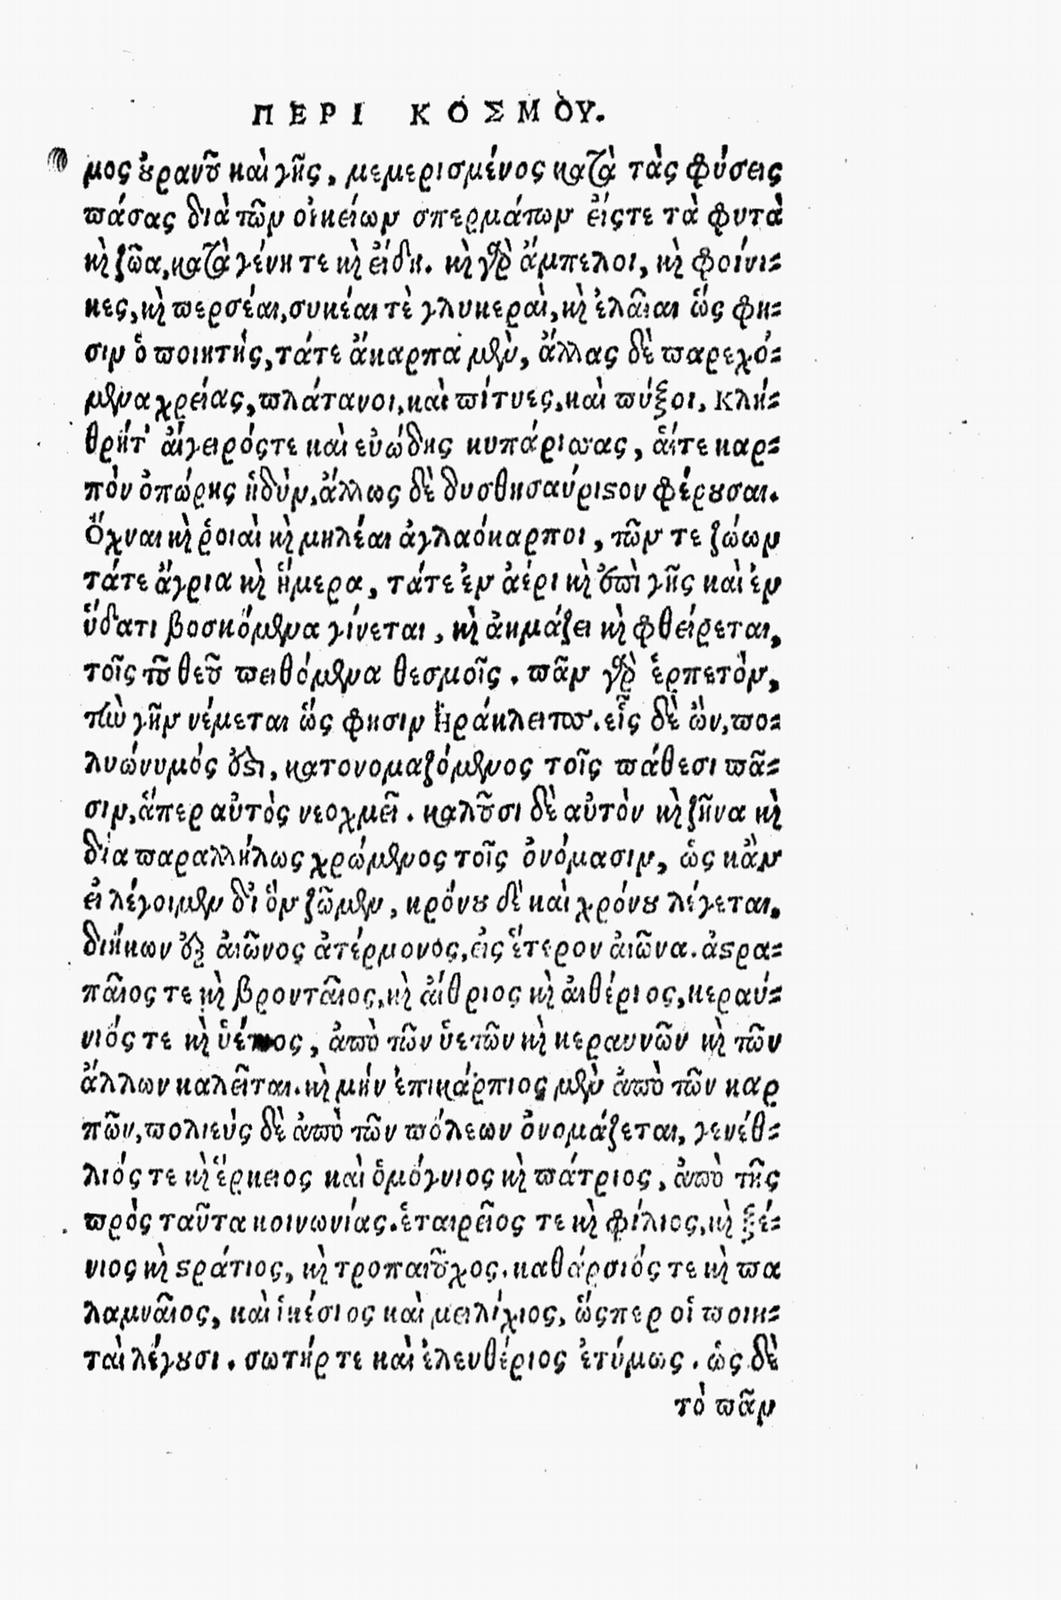 ΠΕΡΙ ΚΟΣΜΟΥ.
μος ȣρανȣ͂ καὶ γῆς, μεμερισμένος κατὰ τὰς φύσεις
πάσας διὰ τῶν οἰκείων σπερμάτων εἴς τε τὰ φυτὰ
κὴ ζῶα, κατὰ γένη τε κὴ εἴδη. κὴ γὰρ ἄμπελοι, κὴ φοίνι-
κες, κὴ περσέαι, συκέαι τὲ γλυκεραὶ, κὴ ἐλαῖαι ὥς φη-
σιν ὁ ποιητής, τάτε ἄκαρπα μὲν, ἄλλας δὲ παρεχό-
μενα χρείας, πλάτανοι, καὶ πίτυες, καὶ πύξοι, κλή-
θρήτ' αἴγειρόςτε καὶ εὐώδης κυπάρισσας, αἵτε καρ-
πὸν ὀπώρης ἡδὺν, ἄλλως δὲ δυσθησαύριστον φέρȣσαι.
Ὄχναι κὴ ῥοιαὶ κὴ μηλέαι ἀγλαόκαρποι, τῶν τε ζώων
τάτε ἄγρια κὴ ἥμερα, τάτε ἐν ἀέρι κὴ ἐπὶ γῆς καὶ ἐν
ὕδατι βοσκόμενα γίνεται, κὴ ἀκμάζει κὴ φθείρεται,
τοῖς τοῦ θεοῦ πειθόμενα θεσμοῖς. πᾶν γὰρ ἑρπετὸν,
τὼ γῆν νέμεται ὥς φησιν Ηράκλειτος. εἷς δὲ ὢν, πο-
λυώνυμός ὅστι, κατονομαζόμενος τοῖς πάθεσι πᾶ-
σιν, ἅπερ αὐτὸς νεοχμεῖ. καλοῦσι δὲ αὐτὸν κὴ ζῆνα κὴ
δία παραλλήλως χρώμενος τοῖς ὀνόμασιν, ὡς κἂν
εἰ λέγοιμεν δἰ ὃν ζῶμεν, κρόνȣ δὲ καὶ χρόνȣ λέγεται,
διήκων ἐξ αἰῶνος ἀτέρμονος, εἰς ἕτερον αἰῶνα. ἀστρα-
παῖος τε κὴ βρονταῖος, κὴ αἴθριος κὴ αἰθέριος, κεραύ-
νιός τε κὴ ὑέτιος, ἀπὸ τῶν ὑετῶν κὴ κεραυνῶν κὴ τῶν
ἄλλων καλεῖται. κὴ μήν ἐπικάρπιος μὲν ἀπὸ τῶν καρ
πῶν, πολιεὺς δὲ ἀπὸ τῶν πόλεων ὀνομάζεται, γενέθ-
λιός τε κὴ ἕρκειος καὶ ὁμόγνιος κὴ πάτριος, ἀπὸ τῆς
πρὸς ταῦτα κοινωνίας. ἑταιρεῖος τε κὴ φίλιος, κὴ ξέ-
νιος κὴ στράτιος, κὴ τροπαιοῦχος. καθάρσιός τε κὴ πα
λαμναῖος, καὶ ἱκέσιος καὶ μειλίχιος, ὥςπερ οἱ ποιη-
ταὶ λέγȣσι. σωτήρ τε καὶ ἐλευθέριος ἐτύμως. ὡς δὲ
τὸ πᾶν